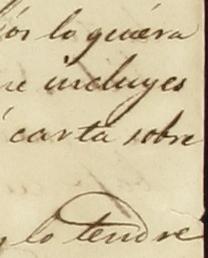 ios lo quiéra
incluyes
carta sobre
lo tendré